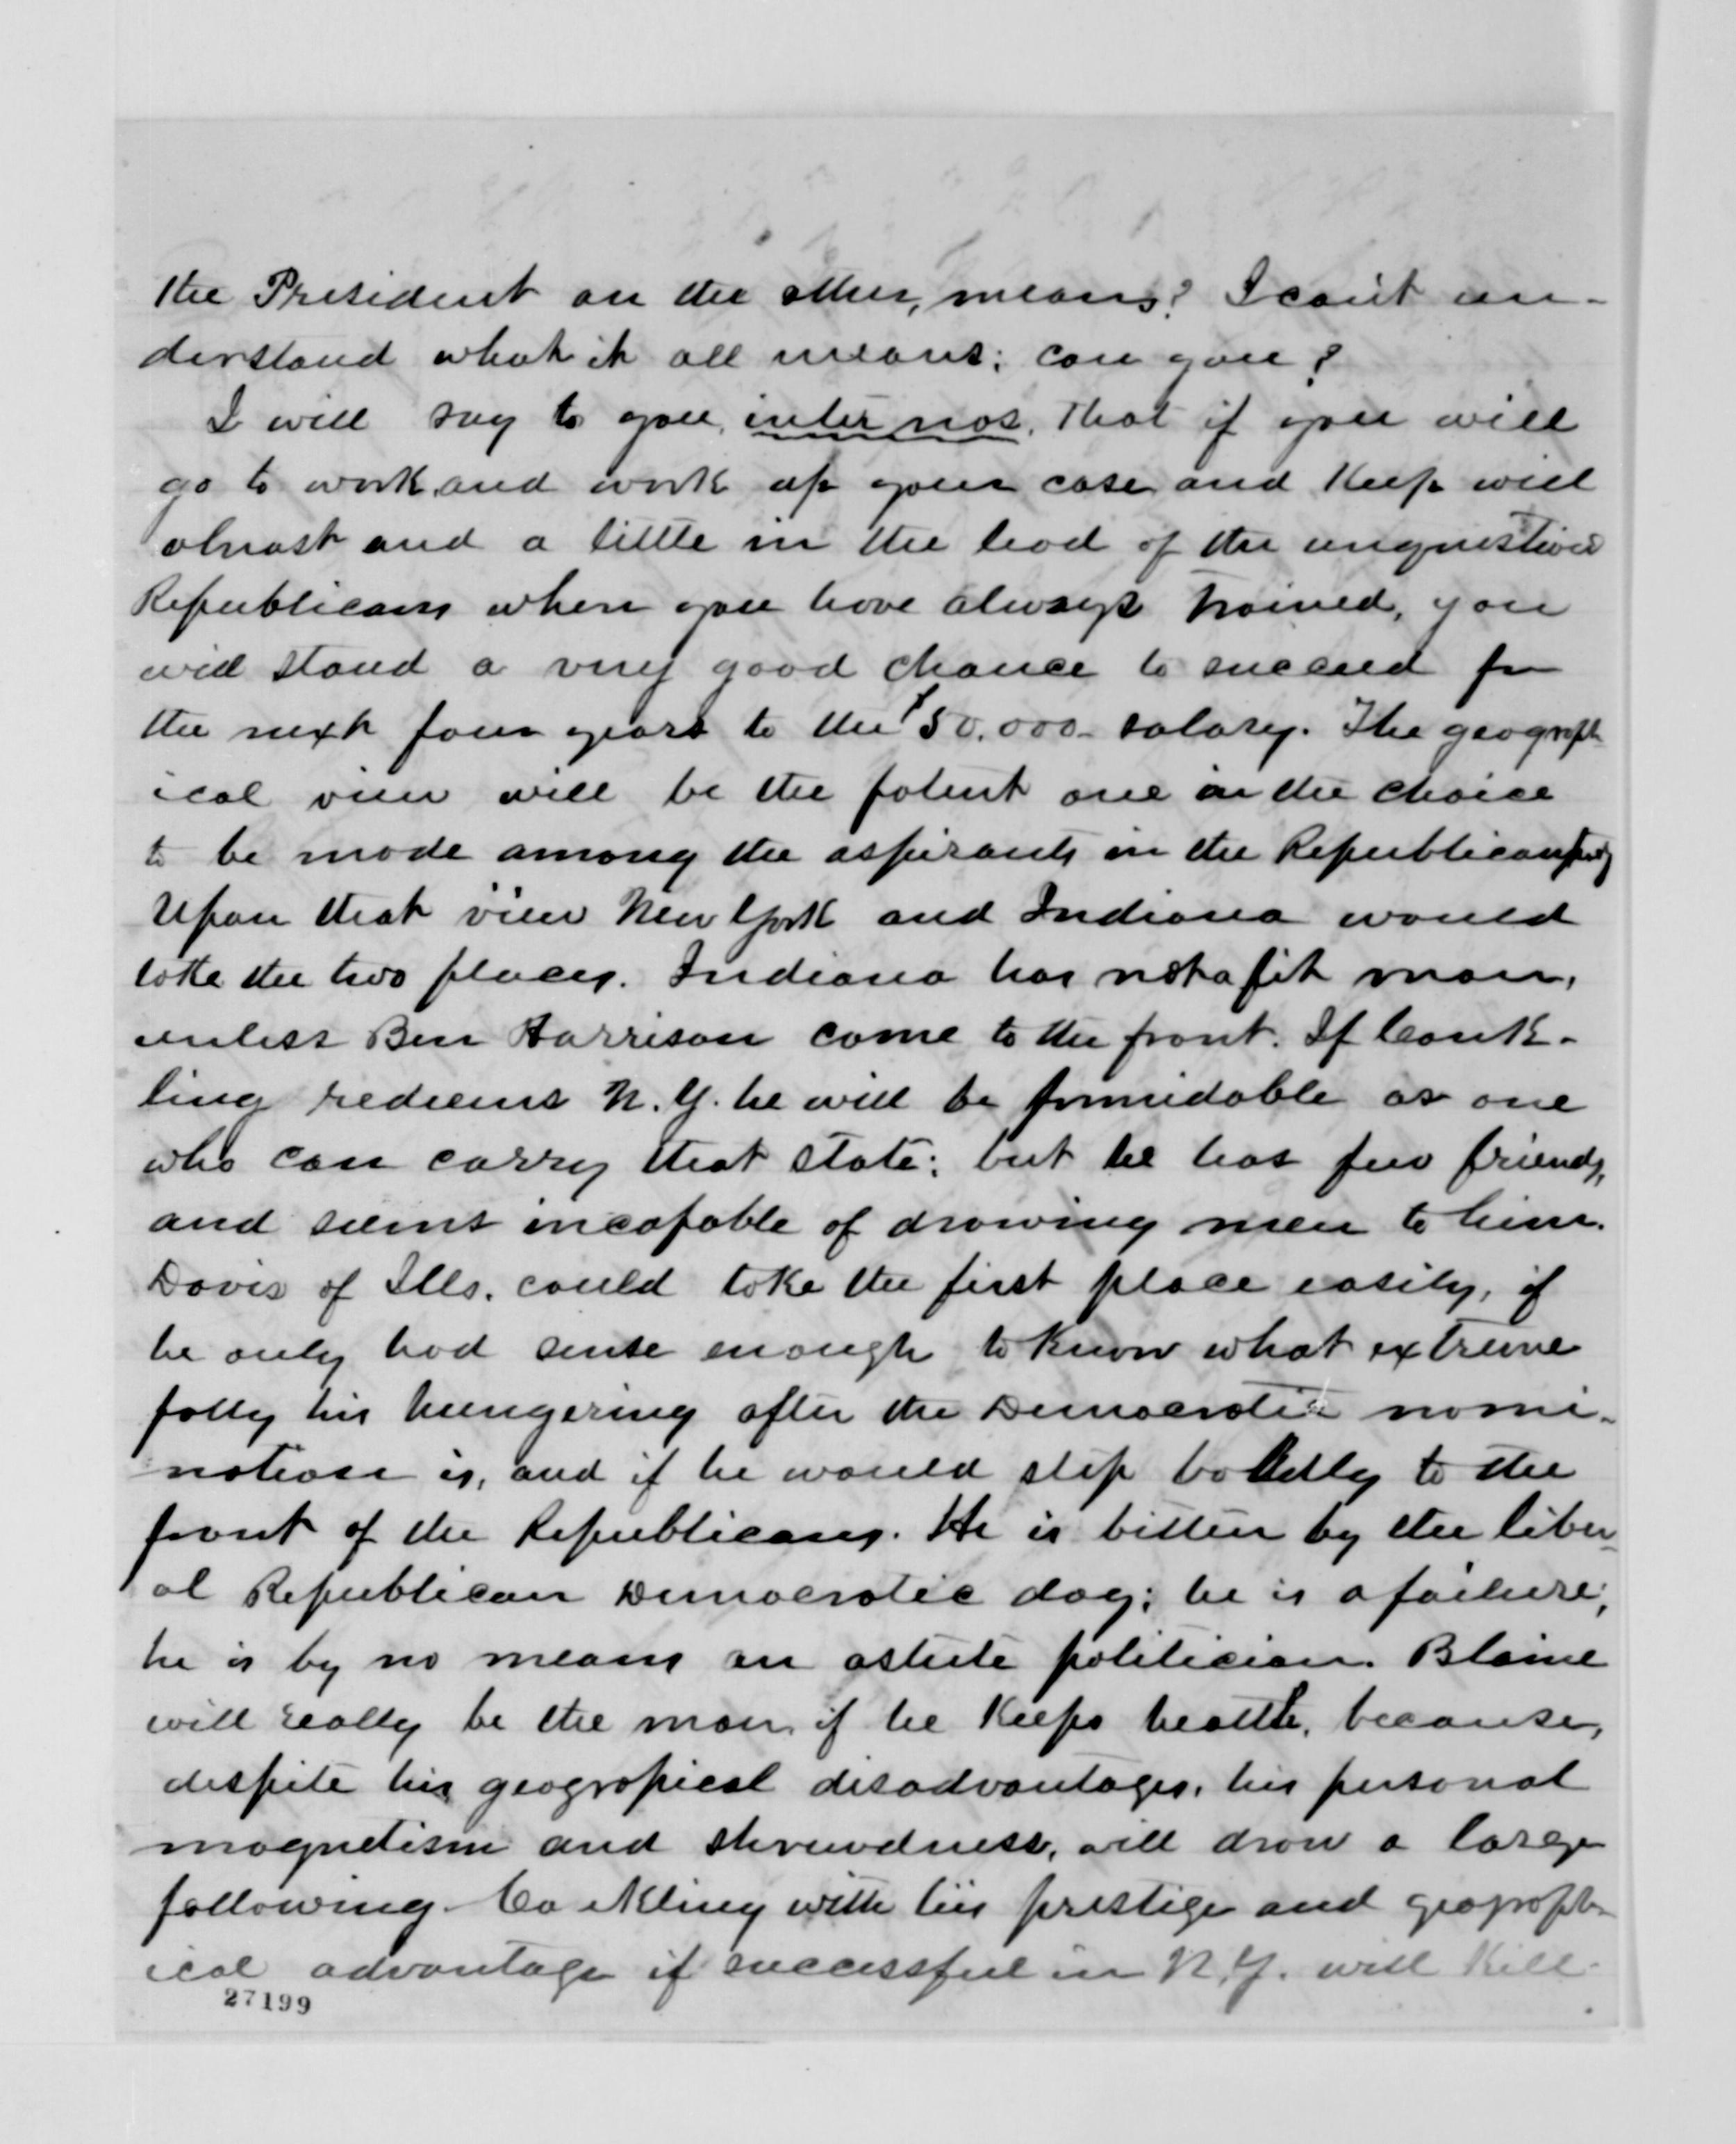 the President on the other, means? I can't un-
derstand what it all means: can you?
I will say to you, inter nos, that if you will
go to work and work up your case and keep well
abreast and a little in the lead of the unquestioned
Republicans when you have always trained, you
will stand a very good chance to succeed for
the next four years to the $50.000 salary. The geograph
ical view will be the potent one in the choice
to be made among the aspirants in the Republican party
Upon that view New York and Indiana would
take the two places. Indiana has not a fit man,
unless Ben Harrison come to the front. If Conk-
ling redeems N.Y. he will be formidable as one
who can carry that state: but he has few friends,
and seems incapable of drawing men to him.
Davis of Ills. could take the first place easily, if
he only had sense enough to know what extreme
folly his hungering after the Democratic nomi-
nation is, and if he would step boldly to the
front of the Republicans. He is bitten by the liber-
al Republican Democratic dog; he is a failure;
he is by no means an astute politician. Blaine
will really be the man, if he keeps health, because,
despite his geographical disadvantages, his personal
magnetism and shrewdness, will draw a large
following. Conkling with his prestige and geograph-
ical advantage if successful in N.Y. will kill
27199